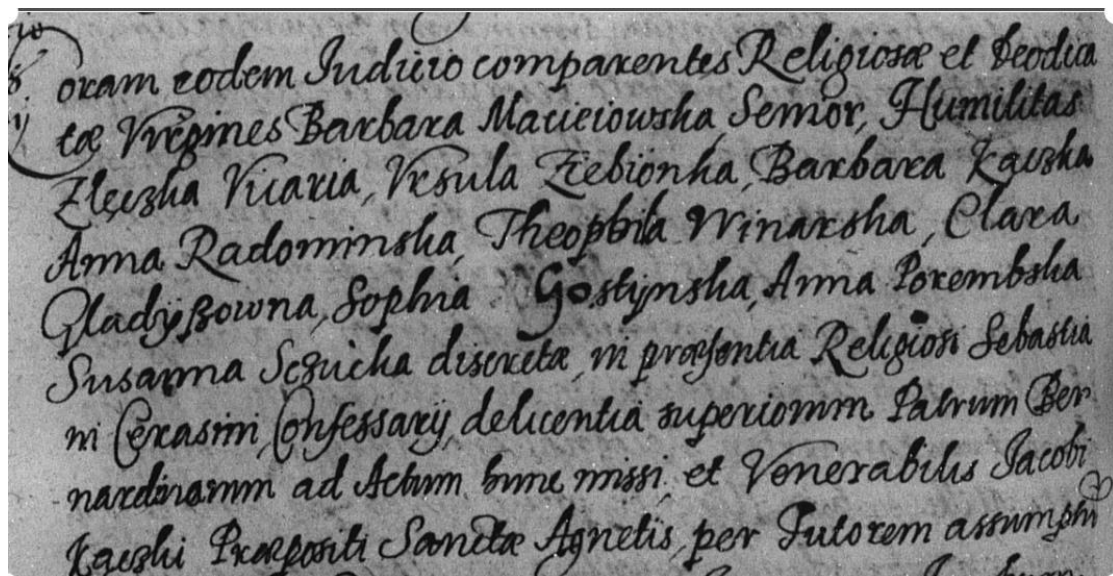 Coram eodem Iudicio comparentes Religiosæ et Deodica
tæ Virgines Barbara Macieiowska, Senior, Humilitas
Zlęczka Vicaria, Vrsula Ziebionka, Barbara Kączka
Anna Radominska, Theophila Winarska, Clara
Gladyßowna, Sophia Gostÿnska, Anna Porembska
Susanna Sczucka discretæ, in præsentia Religiosi Sebastia
ni Cerasini Confessarÿ, delicentia superiorum Patrum Ber
nardinorum ad Actum hunc missi, et Venerabilis Jacobi
Kączki Præpositi Sanctæ Agnetis, per Tutorem assumpti